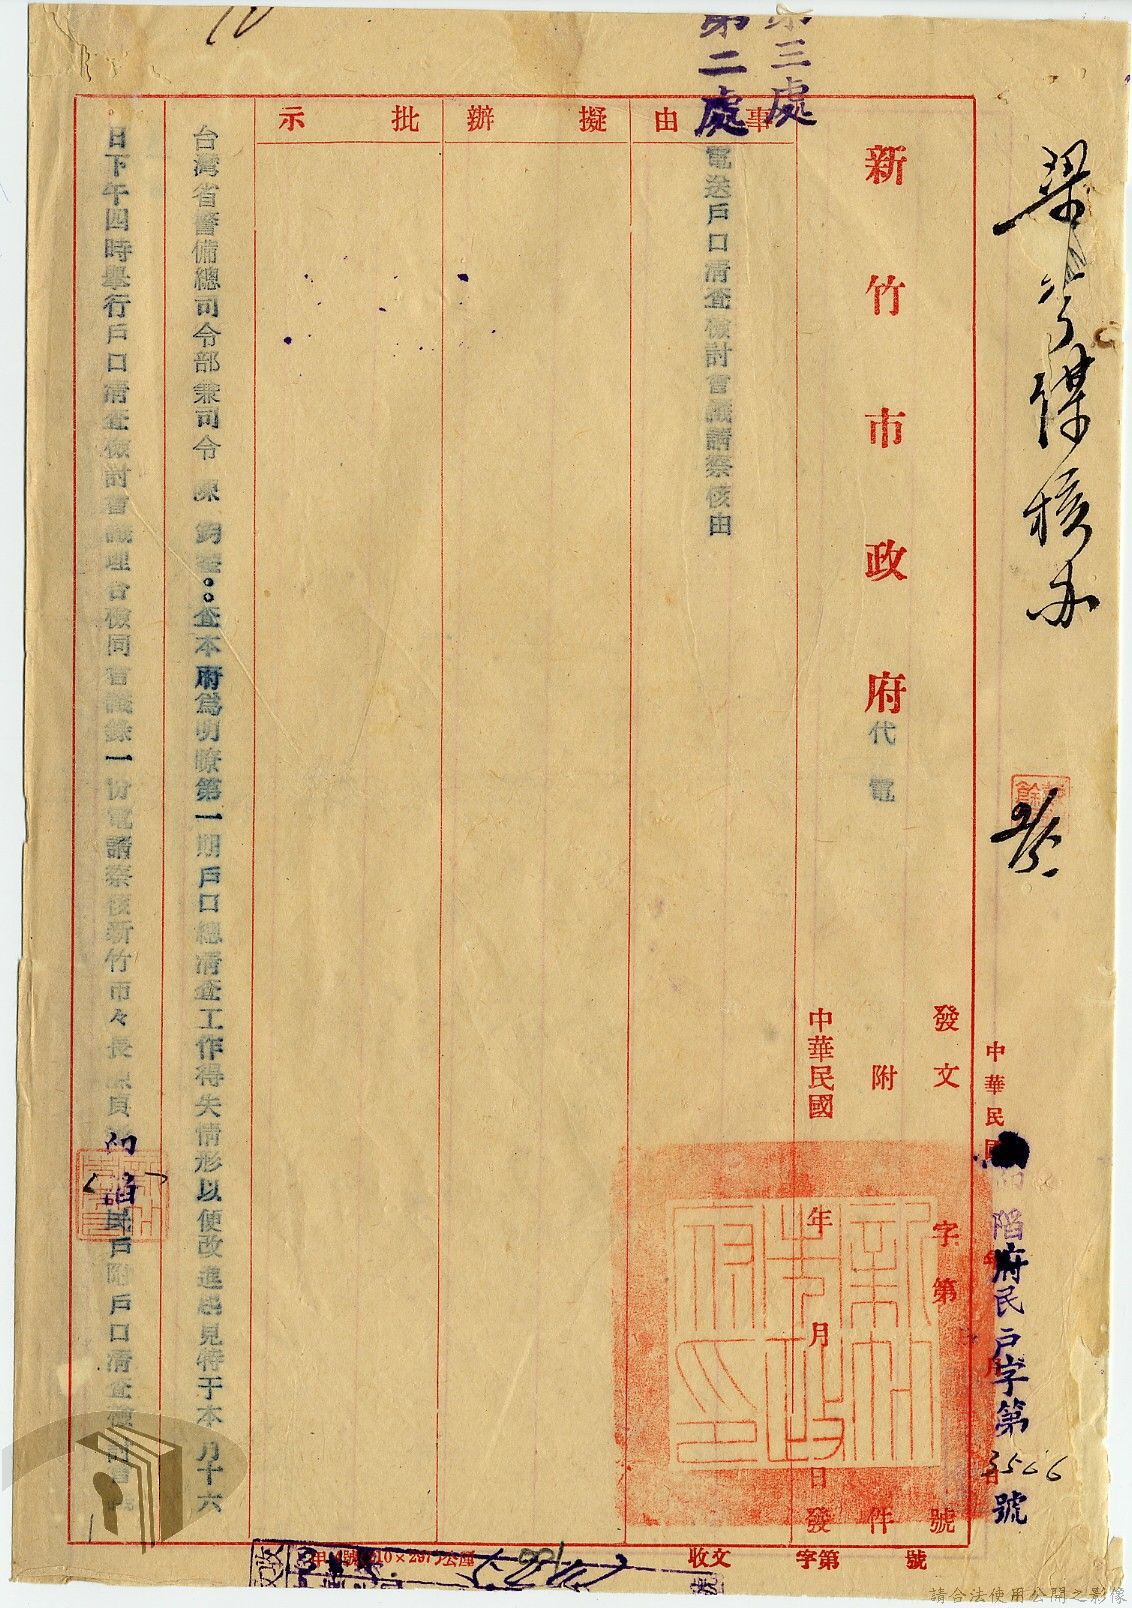 梁參謀核办
9/5
中華民國
府民戶字第3566號
發文 字第 號
新竹市政府代電
附 件
中華民國 年 月 日發
第三處
第二處
事由
電送戶口清查檢討會議請察核由
擬辦
批示
台灣省警備總司令部兼司令 陳 鈞鑒:查本府為明瞭第一期戶口總清查工作得失情形以便改進起見特于本月十六
日下午四時舉行戶口清查檢討會議理合檢同會議錄一份電請察核新竹市々長
民戶附戶口清查檢討會
收文 字第 號
請合法使用公開之影像